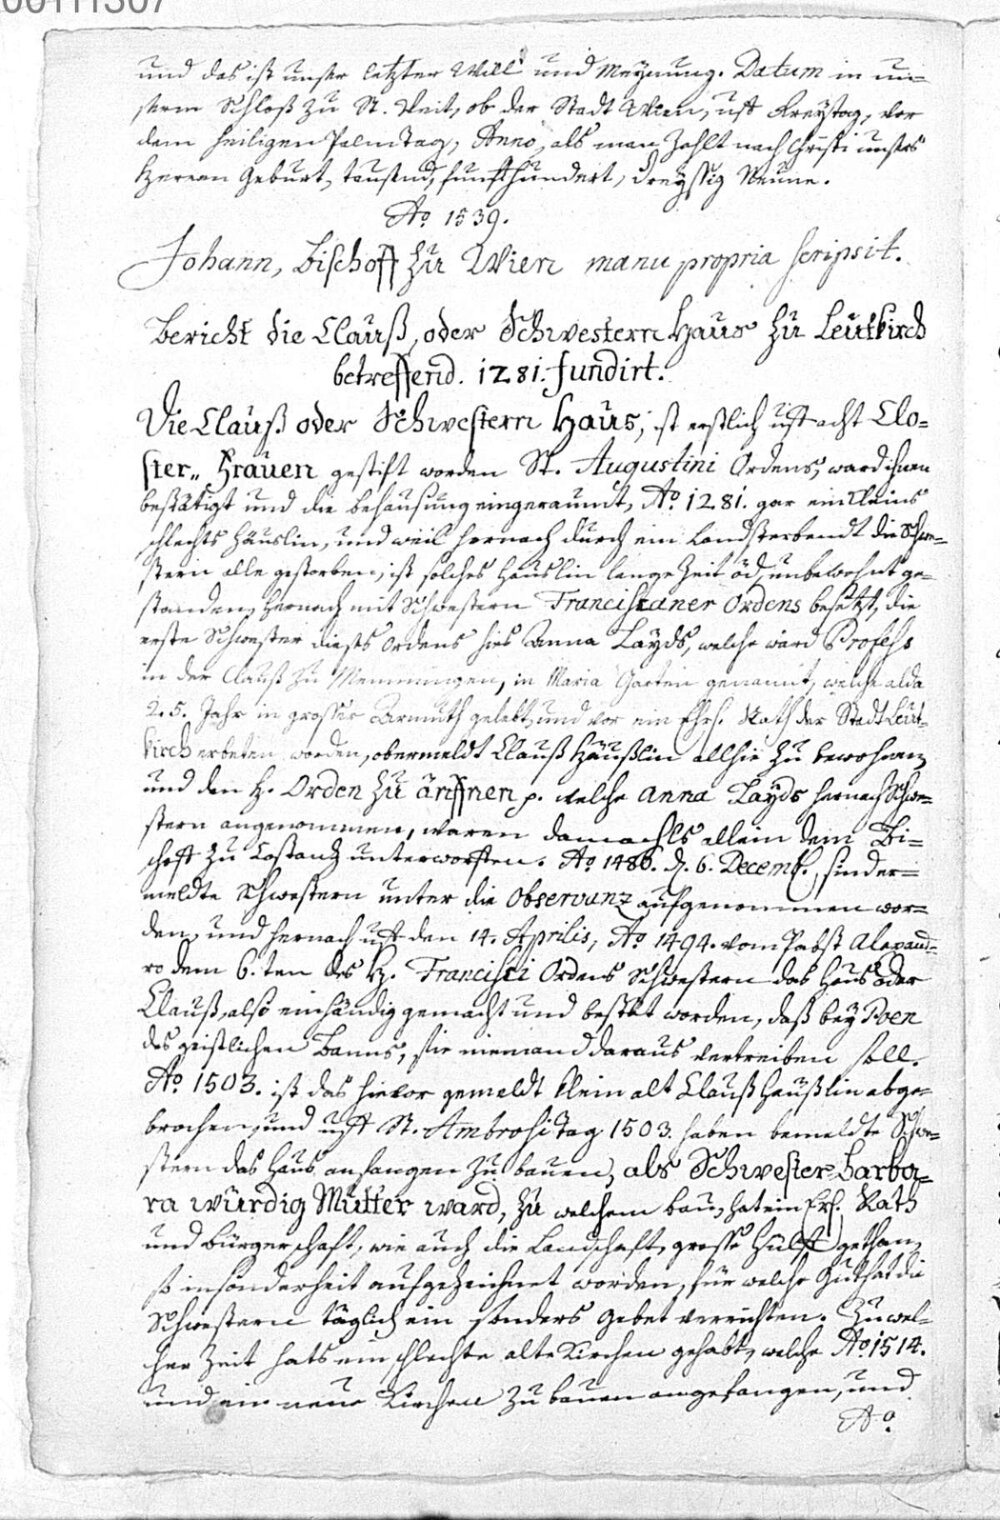 und das ist unser letzter Will und Meynung. Datum in un-
serm Schloß zu St. Veit, ob der Stadt Wien, uff Freytag, vor
dem heiligen Palmtag, Anno, als man zahlt nach Christi unsers
Herren Geburt, tausend, funffhundert, dreyssig Neune.
Ao 1539.
Johann, Bischoff zu Wien manu propria scripsit.
Bericht die Clauß, oder Schwestern Haus zu Leutkirch
betreffend. 1281. fundirt.
Die Clauß oder Schwestern Haus, ist erstlich uff acht Clo-
ster-Frauen gestift worden St. Augustini Ordens, ward ihnen
bestätigt und die behausung eingeraumdt, Ao 1281. gar ein kleins
schlechts Häuslin, und weil hernach durch ein Landsterbendt die Schwe-
stern alle gestorben, ist solches Häuslin lange Zeit öd, unbewohnt ge-
standen, hernach mit Schwestern Franciscaner Ordens besetzt, die
erste Schwester dieses Ordens hies Anna Layds, welche ward Profess
in der Clauß zu Memmingen, in Maria Garten genannt, welche alda
25. Jahr in grosser Armuth gelebt, und vor ein Ehrs. Rath der Stadt Leut-
kirch erbeten worden, obermeldt Clauß Häußlin allhie zu bewohnen
und den H. Orden zu äuffnen p. welche Anna Layds hernach Schwe-
stern angenommen, waren damachls allein dem Bi-
schoff zu Costantz unterworffen. Ao 1486. d. 6. Decemb. sind er-
meldte Schwestern unter die Observanz aufgenommen wor-
den, und hernach uff den 14. Aprilis, Ao 1494. vom Pabst Alexand-
ro dem 6.ten des H. Francisci Ordens Schwestern das Haus oder
Clauß, also einhändig gemacht und bestät worden, daß bey Poen
des geistlichen Banns, sie niemand daraus vertreiben soll.
Ao 1503. ist das hievor gemeldt klein alt Clauß Häußlin abge-
brochen, und uff St. Ambrosi Tag 1503. haben bemeldte Schwe-
stern das Haus anfangen zu bauen, als Schwester Barba-
ra würdig Mutter ward, zu welchem bau, hat ein Ers. Rath
und Bürgerschaft, wie auch die Landschaft, grosse Hülff gethan,
so insonderheit aufgezeichnet worden, für welche Guthat die
Schwestern täglich ein sonders Gebet verrichten. Zu wel-
cher Zeit hats ein schlechte alte Kirchen gehabt, welche Ao 1514.
und ein neue Kirchen zu bauen angefangen, und
Ao